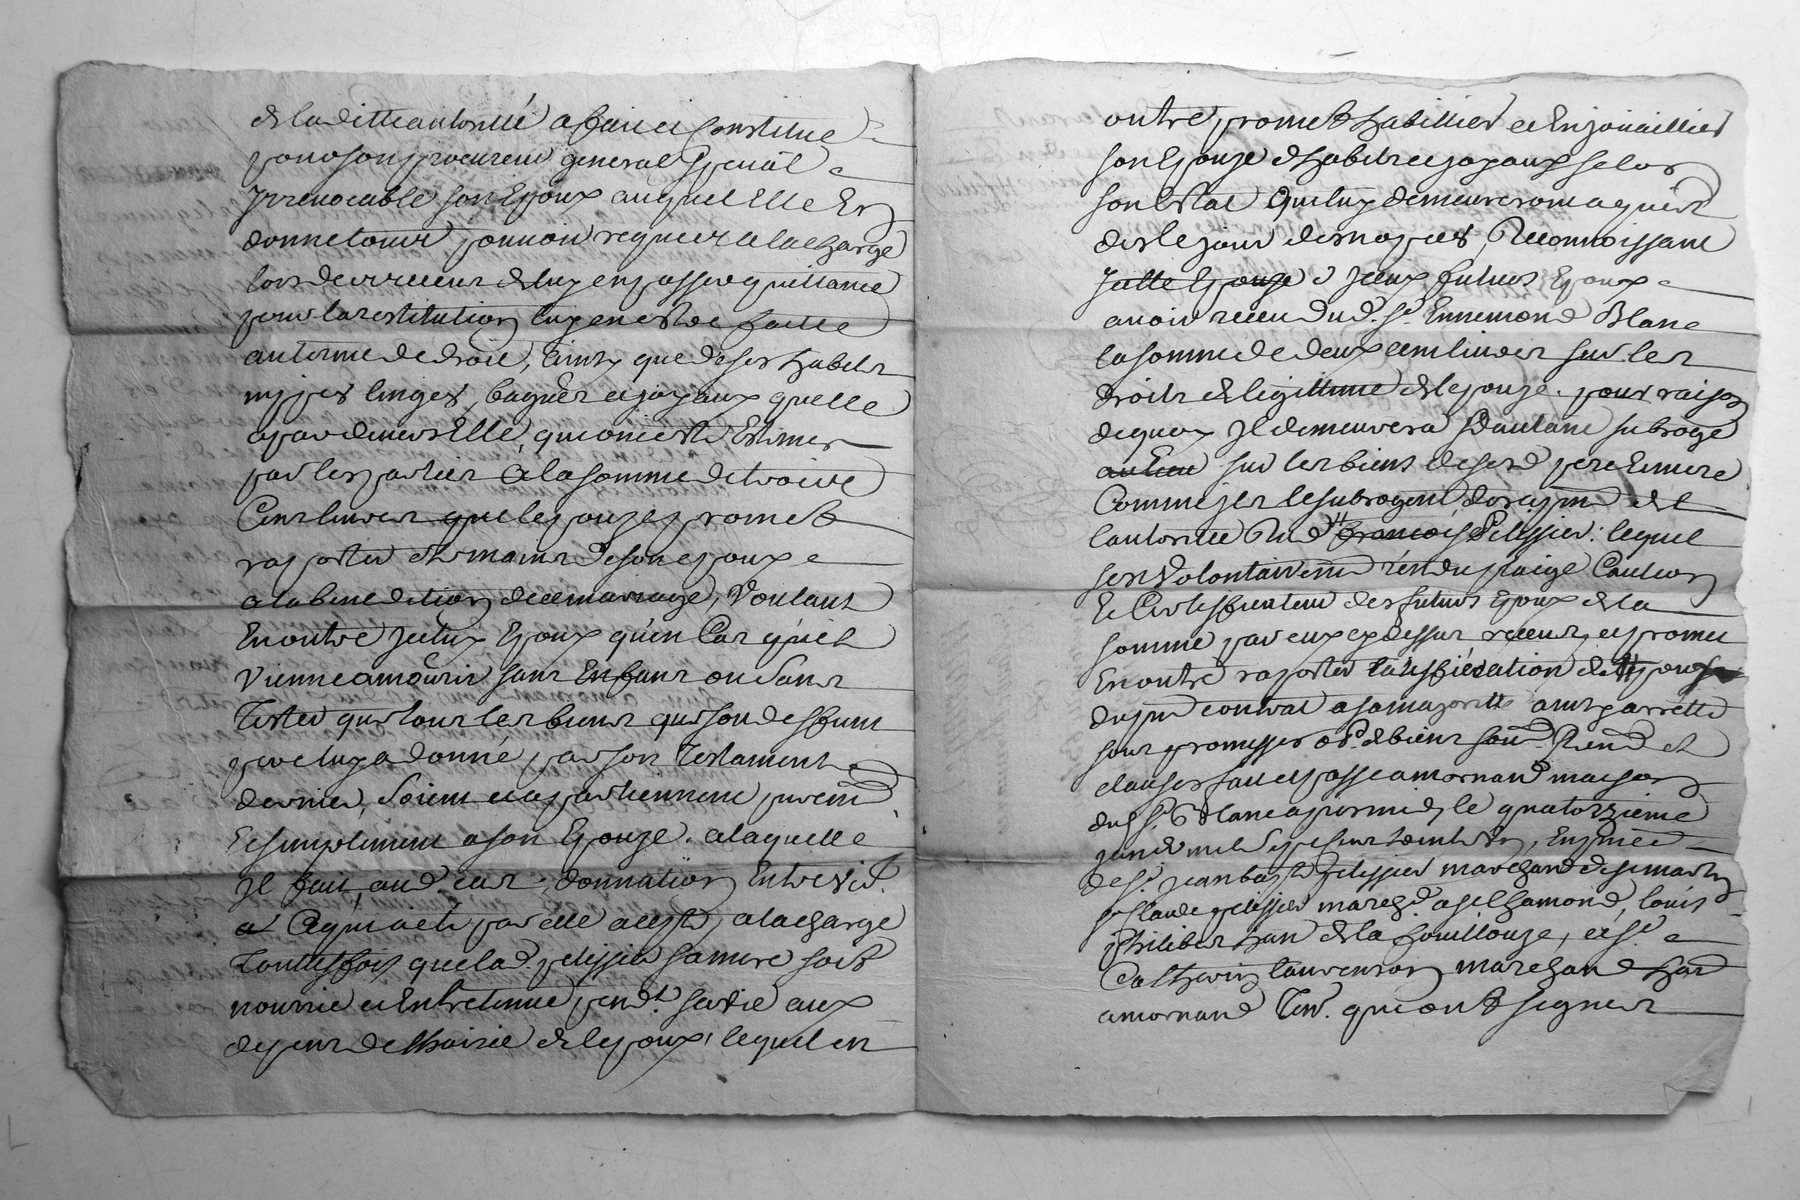 de laditte autorité a fait et constitue
pour son procureur general special e
Irrevocable son Epoux auquel Elle En
donne tout pouvoir requis et a la charge
lors de recevoir de luy en passer quittance
pour la restitution luy en estre faitte
au terme de droit, ainsy que de ses habits
nippes linges, bagues et joyaux quelle
a pardevers Elle, qui ont esté Estimes
par les parties a la somme de troive
Cens livres que lepouze promet
raporter es mains de son epoux e
a la benediction de ce mariage, Voulant
En outre jceluy Epoux qu'en Cas qu'il
Vienne a mourir sans Enfans ou sans
Tester que tous les biens que son deffunt
pere luy a donné, par son Testament
dernier, Soient et appartiennent purem.t
Et simplement a son Epouze. a laquelle
Il fait, aud. cas, donnation Entre vifs.
a Ce quiacté par elle acepté, a la charge
Touttesfois que lad. pelissier sa mere soit
nourrie et Entretenue pend.t sa vie aux
depens de lhoirie de lepoux, lequel en
outre, promet habillier et Enjouaillier
son Epouze d'habits et joyaux selon
son Estat Qui luy demeureront aquis
des le jour des nopces, Reconnoissant
jceux futurs Epoux e
avoir receu dud. S.r Ennemond Blanc
la somme de deux cent livres sur les
droits de legittime de lepouze. pour raison
de quoy Il demeurera Dautant subrogé
sur les biens de sesd. pere Et mere
Comme jls le subrogent de
lautorité dud. Pelissier: lequel
sest Volontairem.t rendu pleige Caution
Et Certifficateur des futurs Epoux de la
somme par eux cy dessus receue, et promet
En outre raporter la ratiffication de lepouse
du p.nt contrat a sa majorité ainsy arresté
sous promesses ob. de biens soum.s Renon.s et
clauses fait et passé a mornand maison
dud. S.r Blanc apres midy le quatorzieme
mil sept cens En p.nce
de S.r Jean bap.te pelissier marchand de
S.r Claude pelissier march.d a S.t Chamond, louis
philibert de la fouillouze, et S.r e
Catherin laurenson marchand
a mornand Tem. qui ont signes